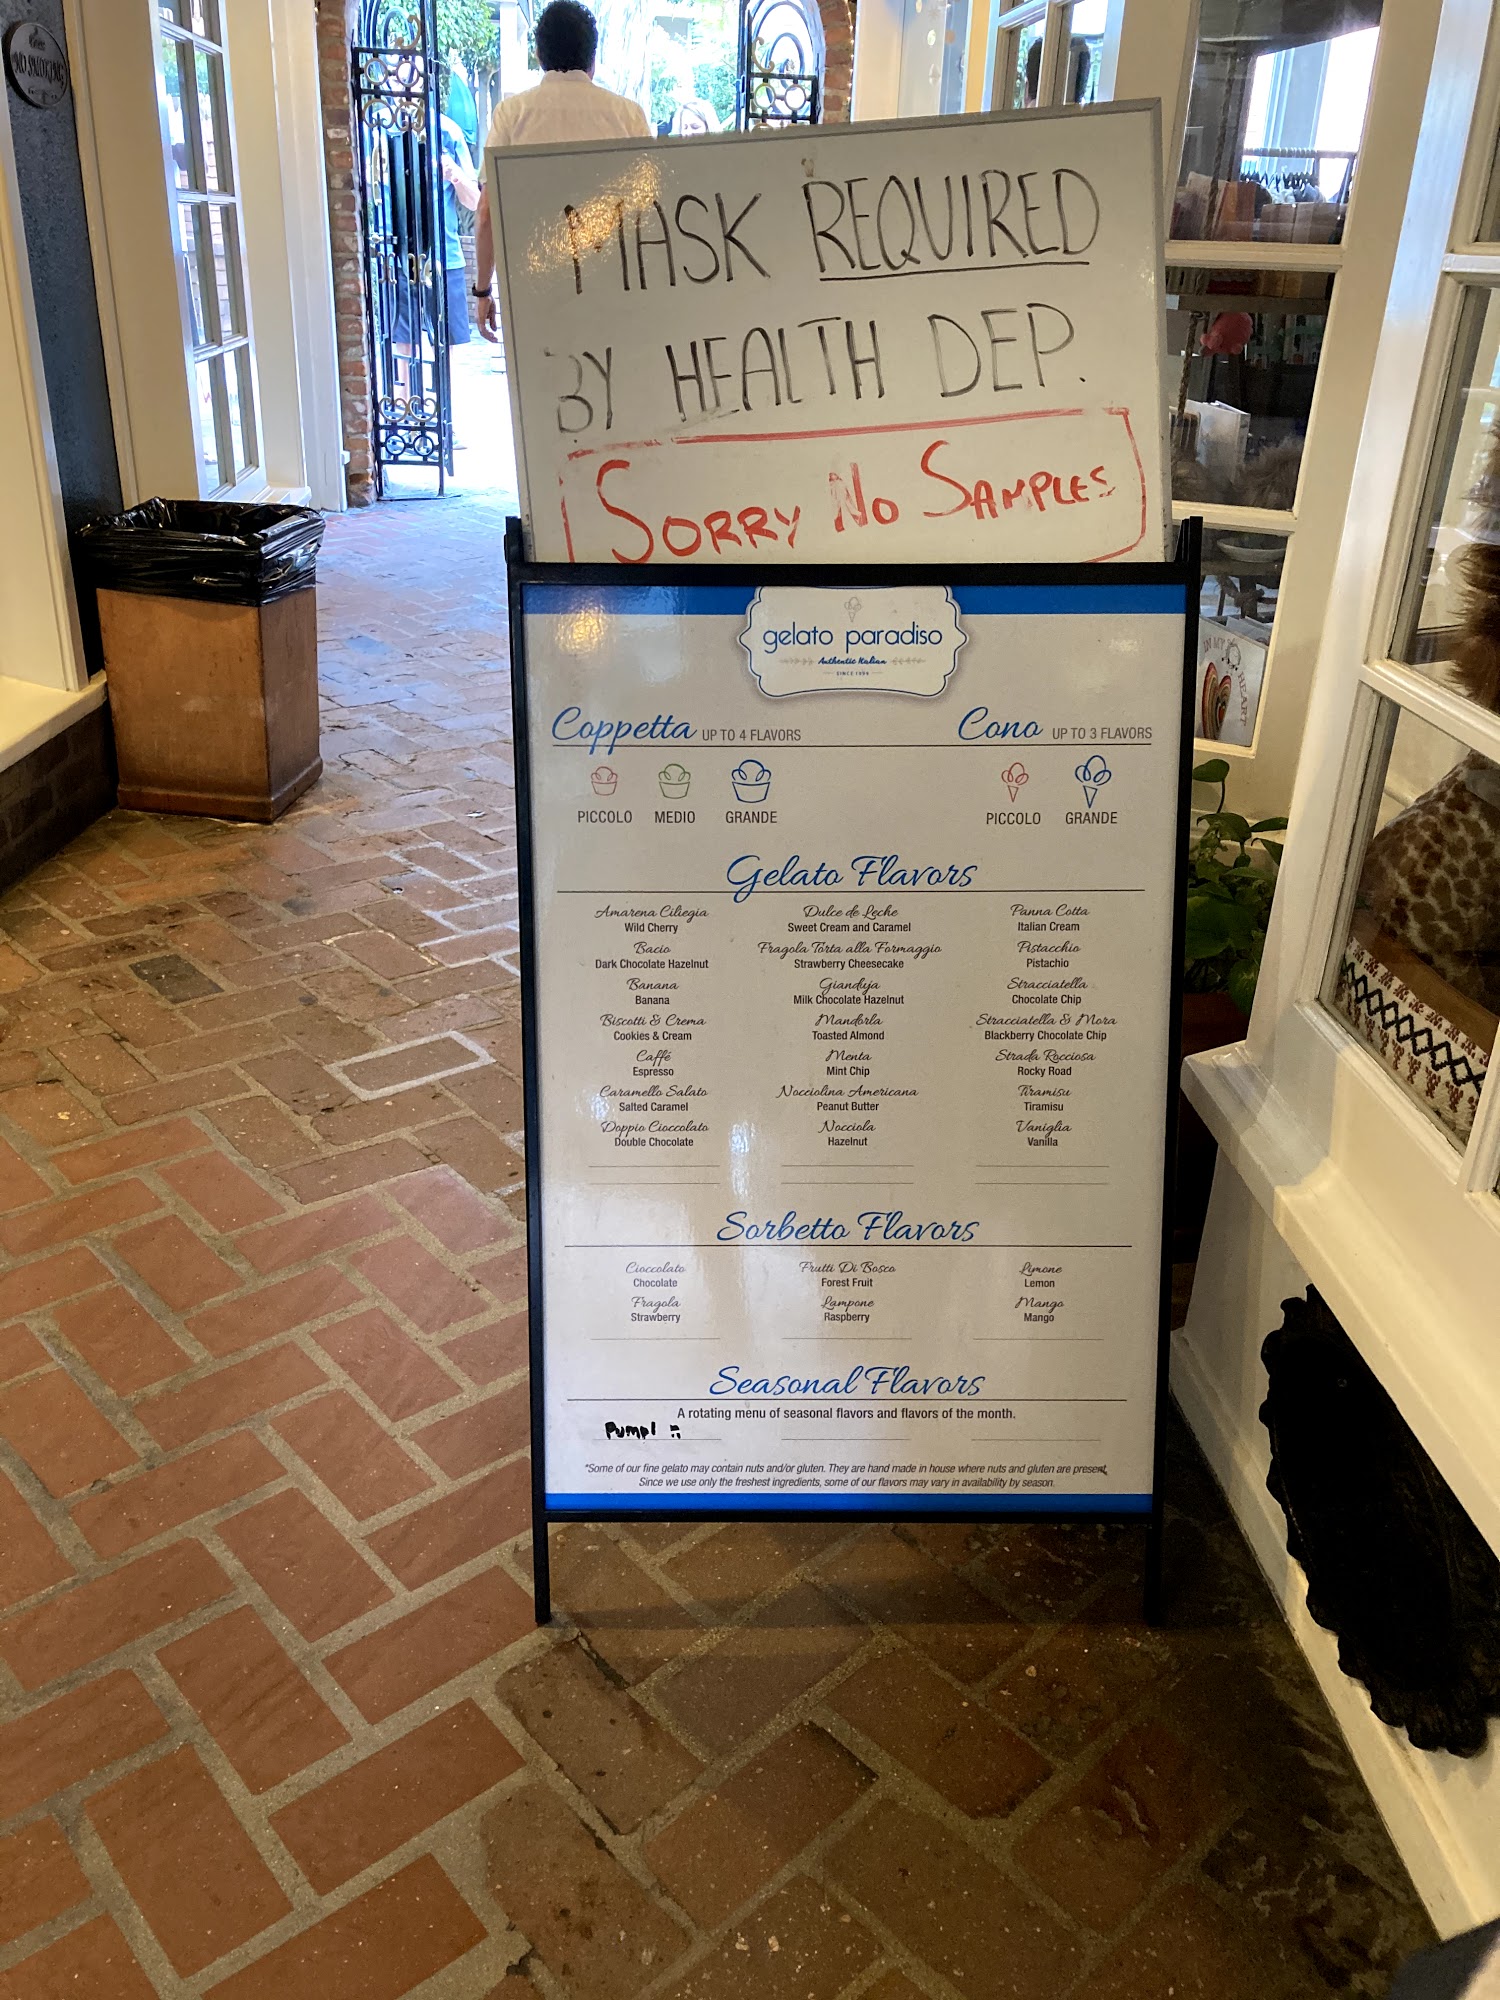 NO SMOKING
MASK REQUIRED
BY HEALTH DEP.
SORRY NO SAMPLES
gelato paradiso
Authentic Italian
SINCE 1994
Coppetta UP TO 4 FLAVORS
Cono UP TO 3 FLAVORS
PICCOLO MEDIO GRANDE
PICCOLO GRANDE
Gelato Flavors
Amarena Ciliegia
Wild Cherry
Bacio
Dark Chocolate Hazelnut
Banana
Banana
Biscotti & Crema
Cookies & Cream
Caffé
Espresso
Caramello Salato
Salted Caramel
Doppio Cioccolato
Double Chocolate
Dulce de Leche
Sweet Cream and Caramel
Fragola Torta alla Formaggio
Strawberry Cheesecake
Gianduja
Milk Chocolate Hazelnut
Mandorla
Toasted Almond
Menta
Mint Chip
Nocciolina Americana
Peanut Butter
Nocciola
Hazelnut
Panna Cotta
Italian Cream
Pistacchio
Pistachio
Stracciatella
Chocolate Chip
Stracciatella & Mora
Blackberry Chocolate Chip
Strada Rocciosa
Rocky Road
Tiramisu
Tiramisu
Vaniglia
Vanilla
Sorbetto Flavors
Cioccolato
Chocolate
Fragola
Strawberry
Frutti Di Bosco
Forest Fruit
Lampone
Raspberry
Limone
Lemon
Mango
Mango
Seasonal Flavors
A rotating menu of seasonal flavors and flavors of the month.
*Some of our fine gelato may contain nuts and/or gluten. They are hand made in house where nuts and gluten are present.
Since we use only the freshest ingredients, some of our flavors may vary in availability by season.
IN MY
HEART